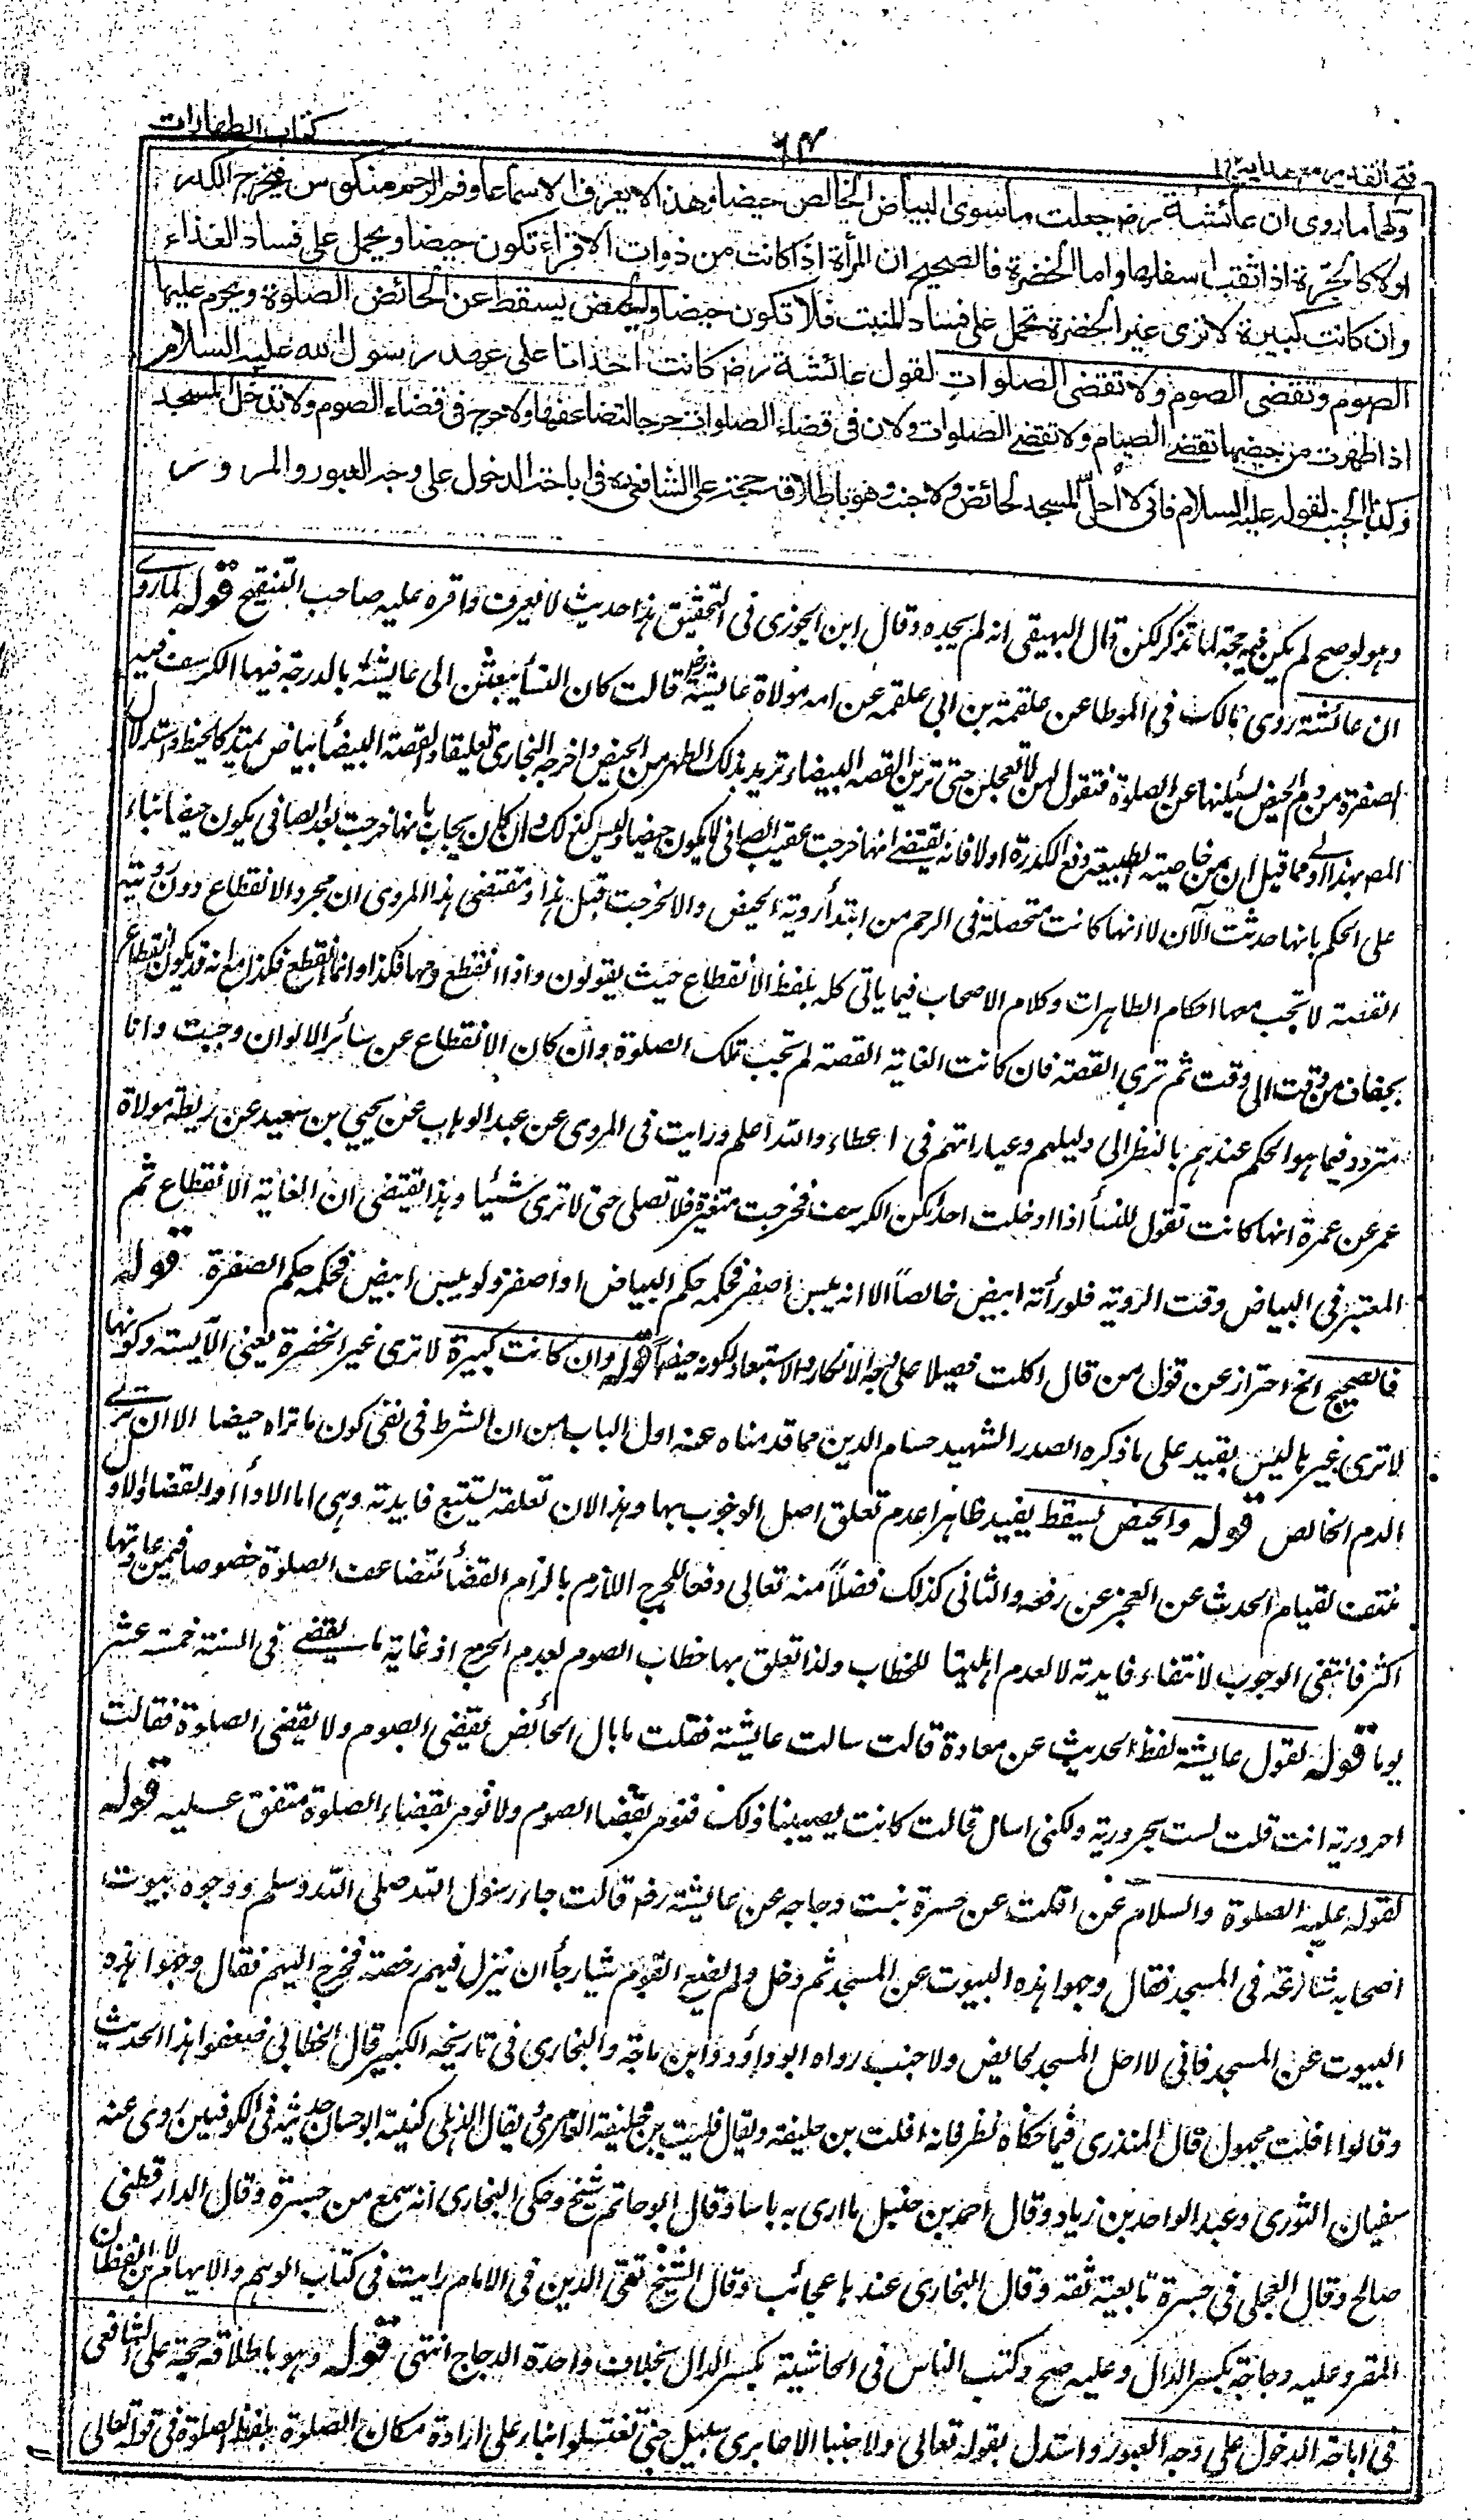 فتح القدير مع هداية ج ١
٦٤
كتاب الطهارات
ولهما ما روى ان عائشة رضـ جعلت ما سوى البياض الخالص حيضا وهذا لا يعرف الا سماعا وفم الرحم منكوس فيخرج الكدر
اولا كالجرة اذا ثقب اسفلها واما الخضرة فالصحيح ان المرأة اذا كانت من ذوات الاقراء تكون حيضا ويحمل على فساد الغذاء
وان كانت كبيرة لا ترى غير الخضرة تحمل على فساد المنبت فلا تكون حيضا والحيض يسقط عن الحائض الصلوة ويحرم عليها
الصوم وتقضى الصوم ولا تقضى الصلوات لقول عائشة رضـ كانت احدانا على عهد رسول الله عليه السلام
اذا طهرت من حيضها تقضى الصيام ولا تقضى الصلوات ولان فى قضاء الصلوات حرجا لتضاعفها ولا حرج فى قضاء الصوم ولا تدخل المسجد
وكذا الجنب لقوله عليه السلام فانى لا أحل المسجد لحائض ولا جنب وهو باطلاقه حجة على الشافعى رحـ فى اباحة الدخول على وجه العبور والمرور
وهو لو صح لم يكن فيه حجة لما تذكر لكن قال البيهقى انه لم يجده وقال ابن الجوزى فى التحقيق هذا حديث لا يعرف واقره عليه صاحب التنقيح قوله لما روى
ان عائشة روى مالك فى الموطا عن علقمة بن ابى علقمة عن امه مولاة عايشة رضـ قالت كان النسأ يبعثن الى عايشة بالدرجة فيها الكرسف فيه
الصفرة من دم الحيض يسئلنها عن الصلوة فتقول لهن لا تعجلن حتى ترين القصة البيضاء تريد بذلك الطهر من الحيض واخرجه البخارى تعليقا والقصة البيضأ بياض يمتد كالخيط واستدلال
المصـ بهذا اولى مما قيل ان من خاصية الطبيعة دفع الكدرة اولا فانه يقتضى انها خرجت عقيب الصافى لا يكون حيضا وليس كذلك وان كان يجاب بانها خرجت بعد الصافى يكون حيضا بناء
على الحكم بانها حدثت الآن لا انها كانت متحصلة فى الرحم من ابتدأ رؤية الحيض والا لخرجت قبل هذا ومقتضى هذا المروى ان مجرد الانقطاع دون رؤية
القصة لا تجب معها احكام الطاهرات وكلام الاصحاب فيما ياتى كله بلفظ الانقطاع حيث يقولون واذا انقطع دمها فكذا وانما انقطع فكذا مع انه قد يكون انقطاع
بجفاف من وقت الى وقت ثم ترى القصة فان كانت الغاية القصة لم تجب تلك الصلوة وان كان الانقطاع عن سائر الالوان وجبت وانا
متردد فيما هو الحكم عندهم بالنظر الى دليلهم وعباراتهم فى اعطاء والله اعلم ورايت فى المروى عن عبد الوهاب عن يحيى بن سعيد عن ريطة مولاة
عمر عن عمرة انها كانت تقول للنسأ اذا ادخلت احداكن الكرسف فخرجت متغيرة فلا تصلى حتى لا ترى شيئا وهذا يقتضى ان الغاية الانقطاع ثم
المعتبر فى البياض وقت الرؤية فلو رأته ابيض خالصا الا انه يبس اصفر فحكمه حكم البياض او اصفر ولو يبس ابيض فحكمه حكم الصفرة قوله
فالصحيح الخ احتراز عن قول من قال اكلت فصيلا على وجه الانكار والاستبعاد لكونه حيضا قوله وان كانت كبيرة لا ترى غير الخضرة يعنى الآيسة وكونها
لا ترى غيرها ليس بقيد على ما ذكره الصدر الشهيد حسام الدين مما قدمناه عنه اول الباب من ان الشرط فى نفى كون ما تراه حيضا الا ان ترى
الدم الخالص قوله والحيض يسقط يفيد ظاهرا عدم تعلق اصل الوجوب بها وهذا لان تعلقه يستتبع فايدته وهى اما الادأ او القضاء والاول
منتف لقيام الحدث عن العجز عن رفعه والثانى كذلك فضلا منه تعالى دفعا للحرج اللازم بالزام القضأ لتضاعف الصلوة خصوصا فيمن عادتها
اكثر فانتفى الوجوب لانتفاء فايدته لا لعدم اهليتها للخطاب ولذا تعلق بها خطاب الصوم لعدم الحرج اذ غاية ما يقضى فى السنة خمسة عشر
يوما قوله لقول عايشة لفظ الحديث عن معاذة قالت سالت عايشة فقلت ما بال الحائض تقضى الصوم ولا تقضى الصلوة فقالت
احرورية انت قلت لست بحرورية ولكنى اسال قالت كانت يصيبنا ذلك فنؤمر بقضا الصوم ولا نؤمر بقضاء الصلوة متفق عليه قوله
لقوله عليه الصلوة والسلام عن افلت عن جسرة بنت دجاجه عن عايشة رضـ قالت جاء رسول الله صلى الله وسلم ووجوه بيوت
اصحابه شارعة فى المسجد فقال وجهوا هذه البيوت عن المسجد ثم دخل ولم يصنع القوم شيا رجأ ان ينزل فيهم رخصة فخرج اليهم فقال وجهوا هذه
البيوت عن المسجد فانى لا احل المسجد لحايض ولا جنب رواه ابو داؤد وابن ماجة والبخارى فى تاريخه الكبير قال الخطابى ضعفوا هذا الحديث
وقالوا افلت مجهول قال المنذرى فيما حكاه نظر فانه افلت بن خليفه ويقال فليت بن خليفة العامرى ويقال الذهلى كنيته ابو حسان حديثه فى الكوفيين روى عنه
سفيان الثورى وعبد الواحد بن زياد وقال احمد بن حنبل ما ارى به باسا وقال ابو حاتم شيخ وحكى البخارى انه سمع من جسرة وقال الدارقطنى
صالح وقال العجلى فى جسرة تابعية ثقه وقال البخارى عندها عجائب وقال الشيخ تقى الدين فى الامام رايت فى كتاب الوهم والايهام لابن القطان
المقروء عليه دجاجة بكسر الدال وعليه صح وكتب الناس فى الحاشية بكسر الدال بخلاف واحدة الدجاج انتهى قوله وهو باطلاقه حجة على الشافعى
فى اباحة الدخول على وجه العبور واستدل بقوله تعالى ولا جنبا الا عابرى سبيل حتى تغتسلوا بناء على ارادة مكان الصلوة بلفظ الصلوة فى قوله تعالى